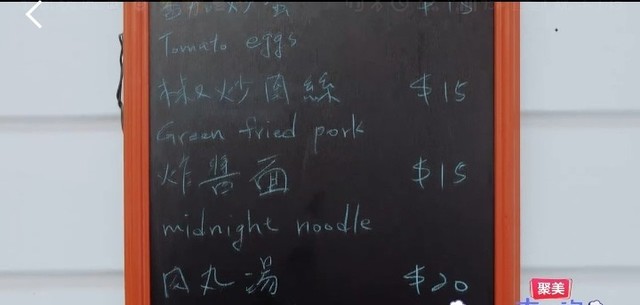 Tomato eggs
椒炒肉絲 $15
Green fried pork
炸醬面 $15
midnight noodle
肉丸湯 $20
聚美